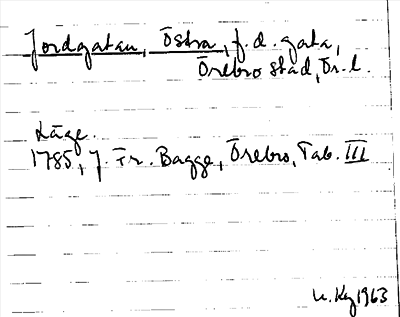 Jordgatan, Östra, f.d. gata,
Örebro stad, Ör. l.
Läge.
1785, J. Fr. Bagge, Örebro, Tab. III
1963